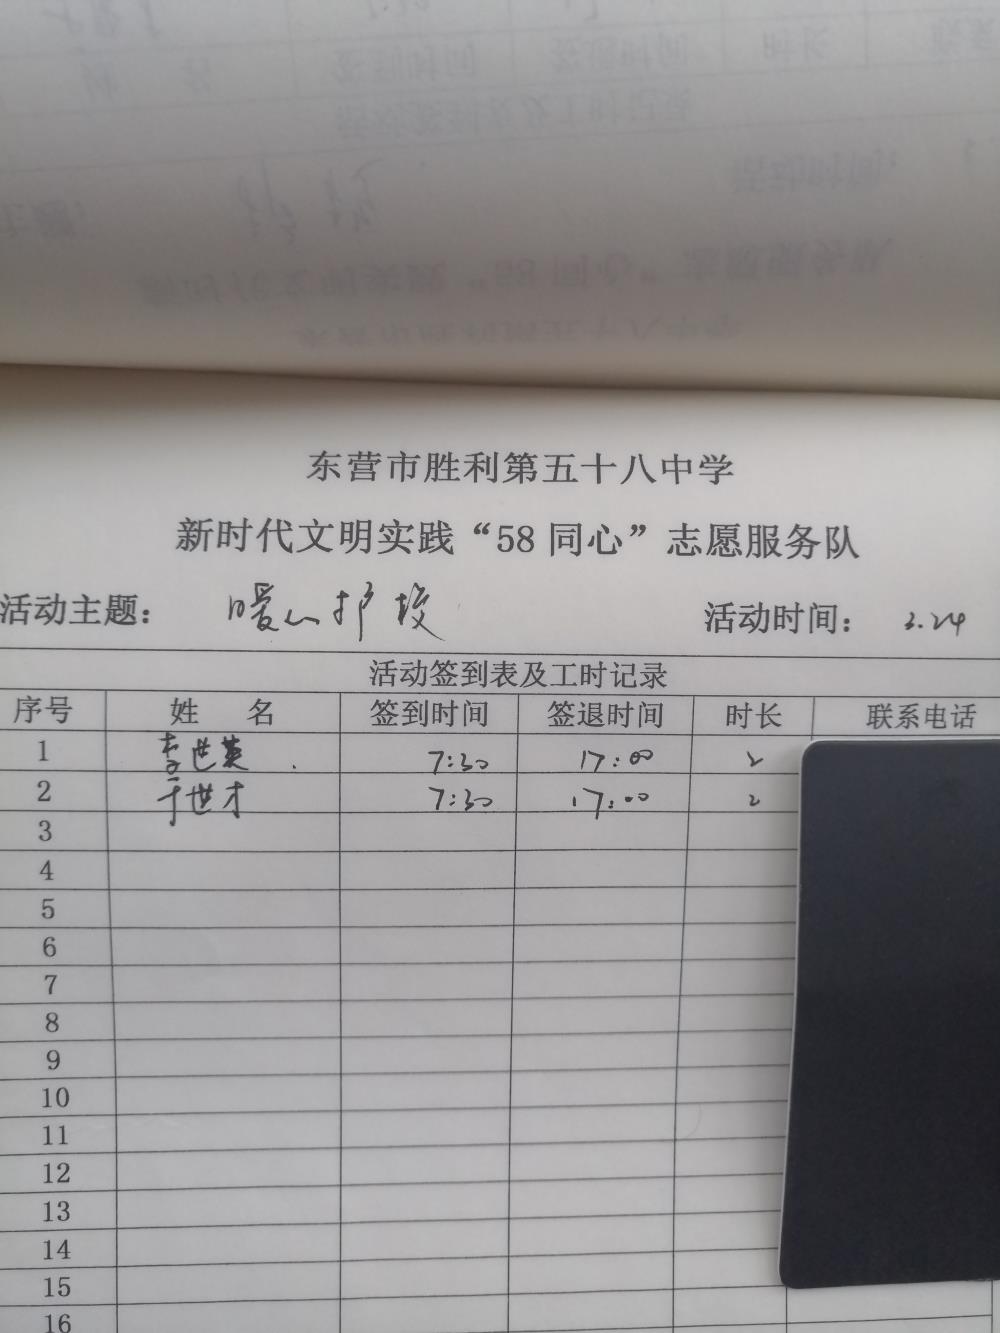 东营市胜利第五十八中学
新时代文明实践“58同心”志愿服务队
活动主题： 暖心护校 活动时间： 3.24
活动签到表及工时记录
序号 姓 名 签到时间 签退时间 时长 联系电话
1 李世英 7:30 17:00 2
2 于世才 7:30 17:00 2
3
4
5
6
7
8
9
10
11
12
13
14
15
16